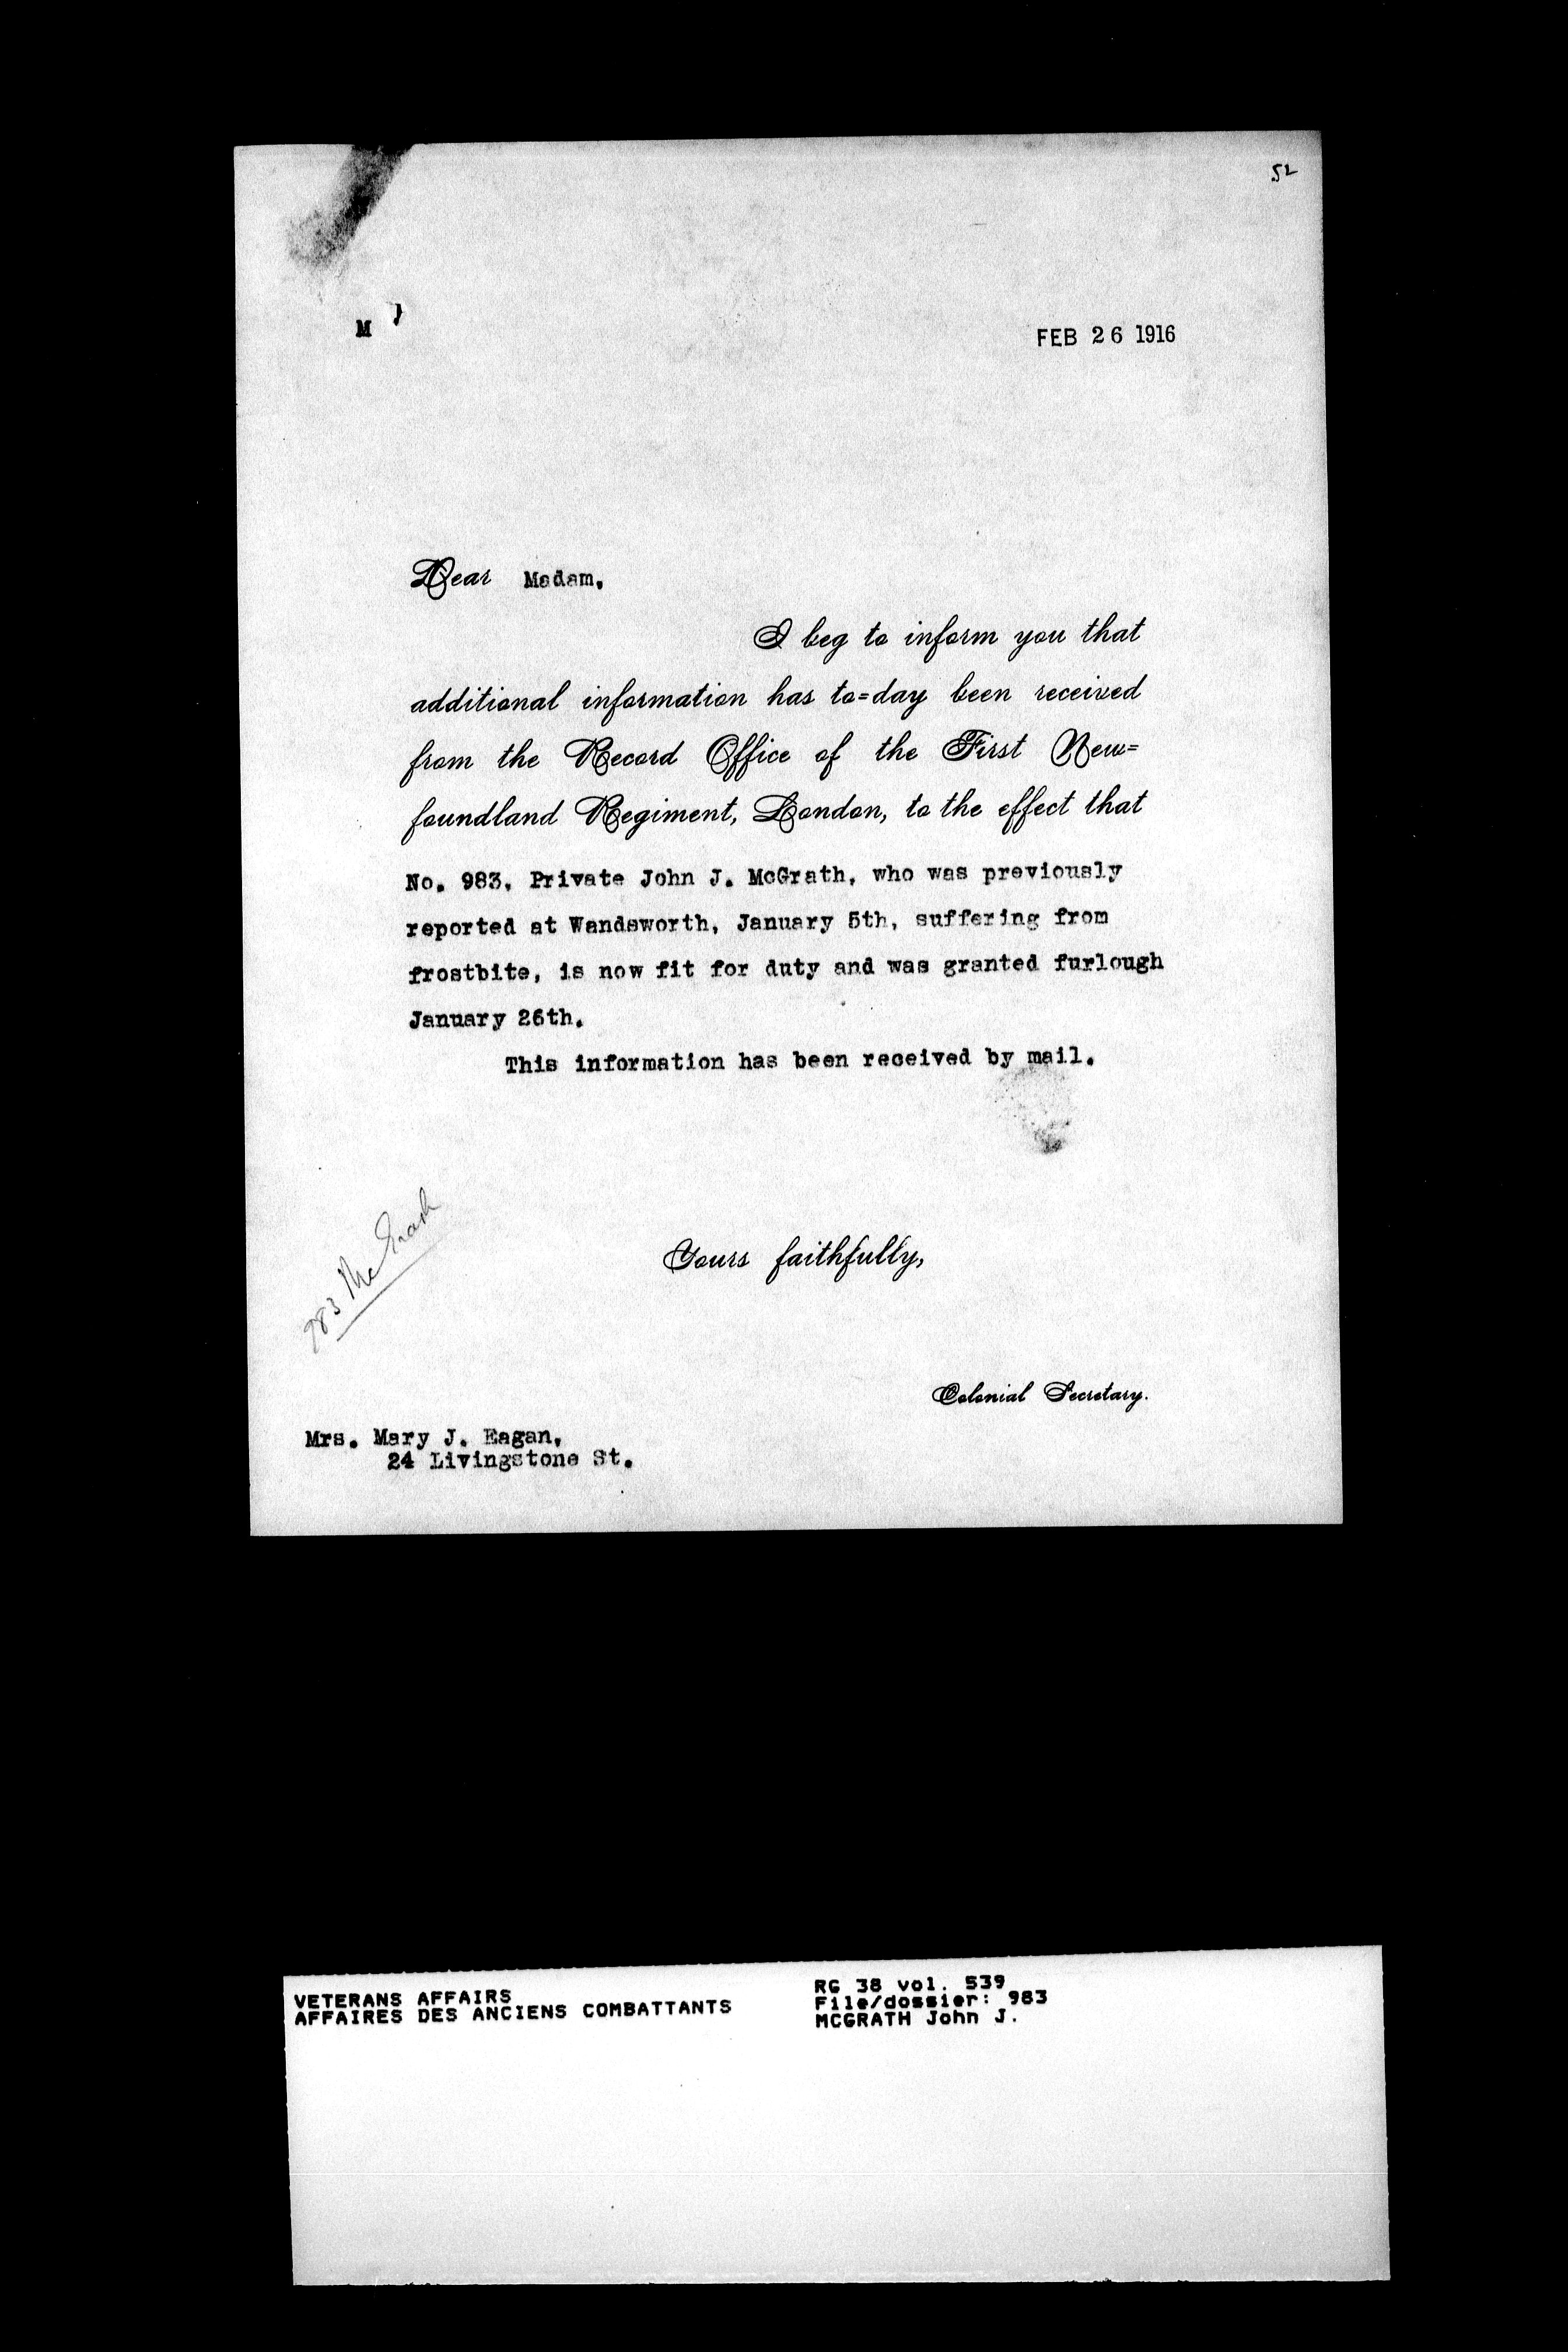 52
M
FEB 26 1916
Dear Madam,
I beg to inform you that
additional information has to=day been received
from the Record Office of the First New=
foundland Regiment, London, to the effect that
No. 983, Private John J. McGrath, who was previously
reported at Wandsworth, January 5th, suffering from
frostbite, is now fit for duty and was granted furlough
January 26th.
This information has been received by mail.
983 McGrath
Yours faithfully,
Colonial Secretary.
Mrs. Mary J. Eagan,
24 Livingstone St.
VETERANS AFFAIRS
AFFAIRES DES ANCIENS COMBATTANTS
RG 38 vol. 539
File/dossier: 983
MCGRATH John J.